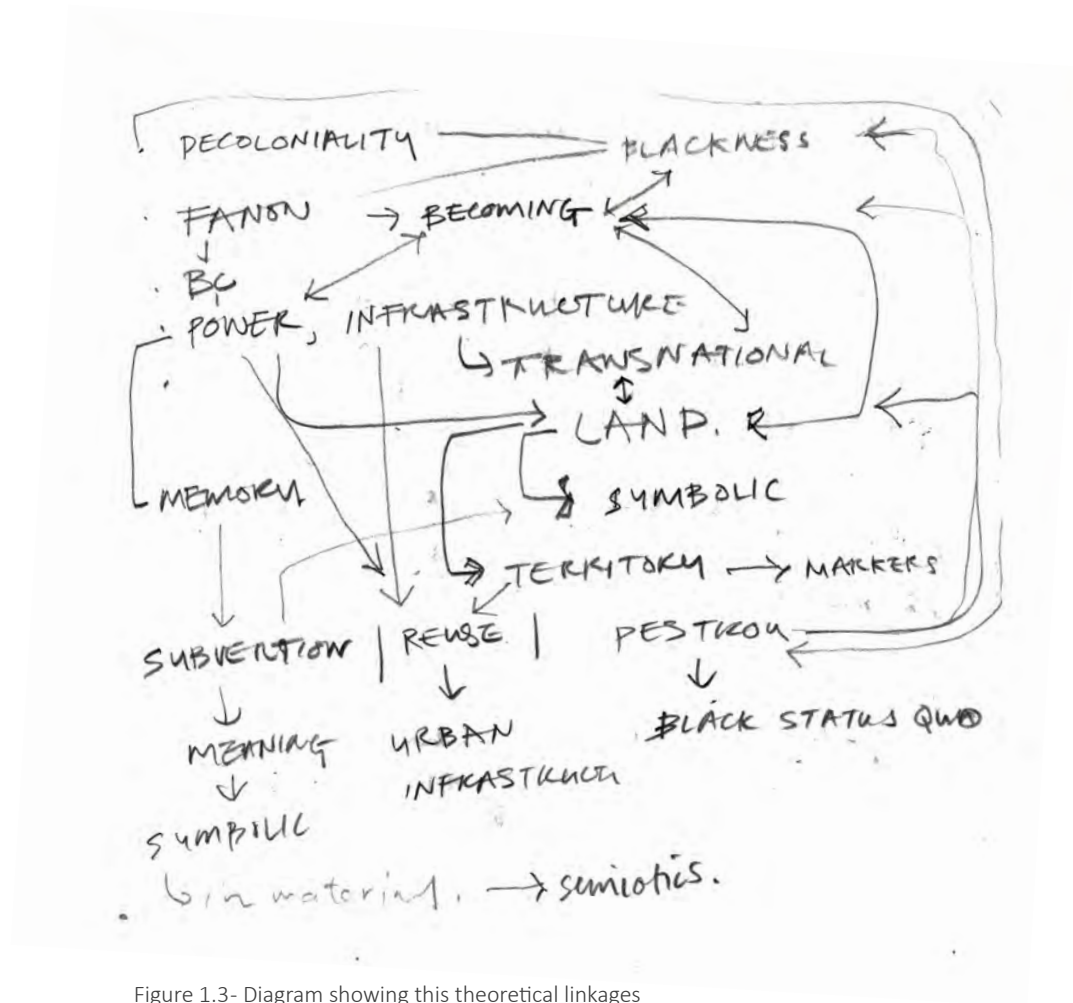 DECOLONIALITY BLACKNESS
FANON → BECOMING
BC
POWER, INFRASTRUCTURE
TRANSNATIONAL
LAND.
MEMORY SYMBOLIC
TERRITORY → MARKERS
SUBVERTION | REUSE | DESTROY
MEANING URBAN BLACK STATUS QUO
INFRASTRUCT
SYMBOLIC
in material. → semiotics.
Figure 1.3- Diagram showing this theoretical linkages